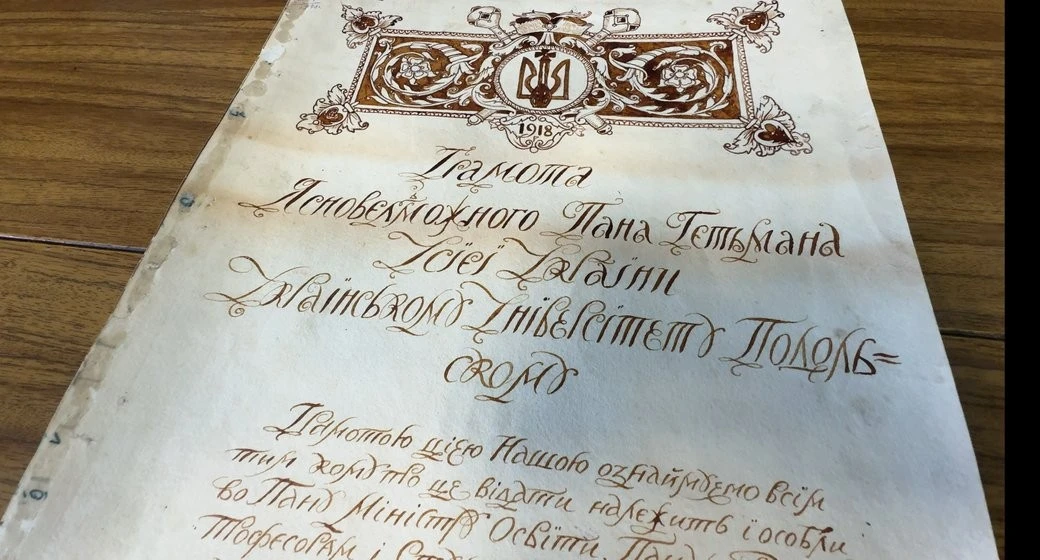 1918
Грамота
Ясновельможного Пана Гетьмана
Усієї України
Українському Університету Подоль=
скому
Грамотою цією Нашою ознаймуємо всім
тим кому про це відати належить і особли
во Пану Міністру Освіти, Пану
Професорам і